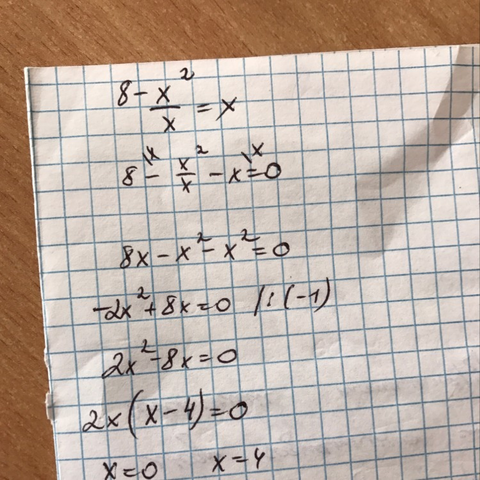 8 - x²/x = x
8\x - x²/x - x\x = 0
8x - x² - x² = 0
-2x² + 8x = 0 /:(-1)
2x² - 8x = 0
2x(x - 4) = 0
x = 0 x = 4